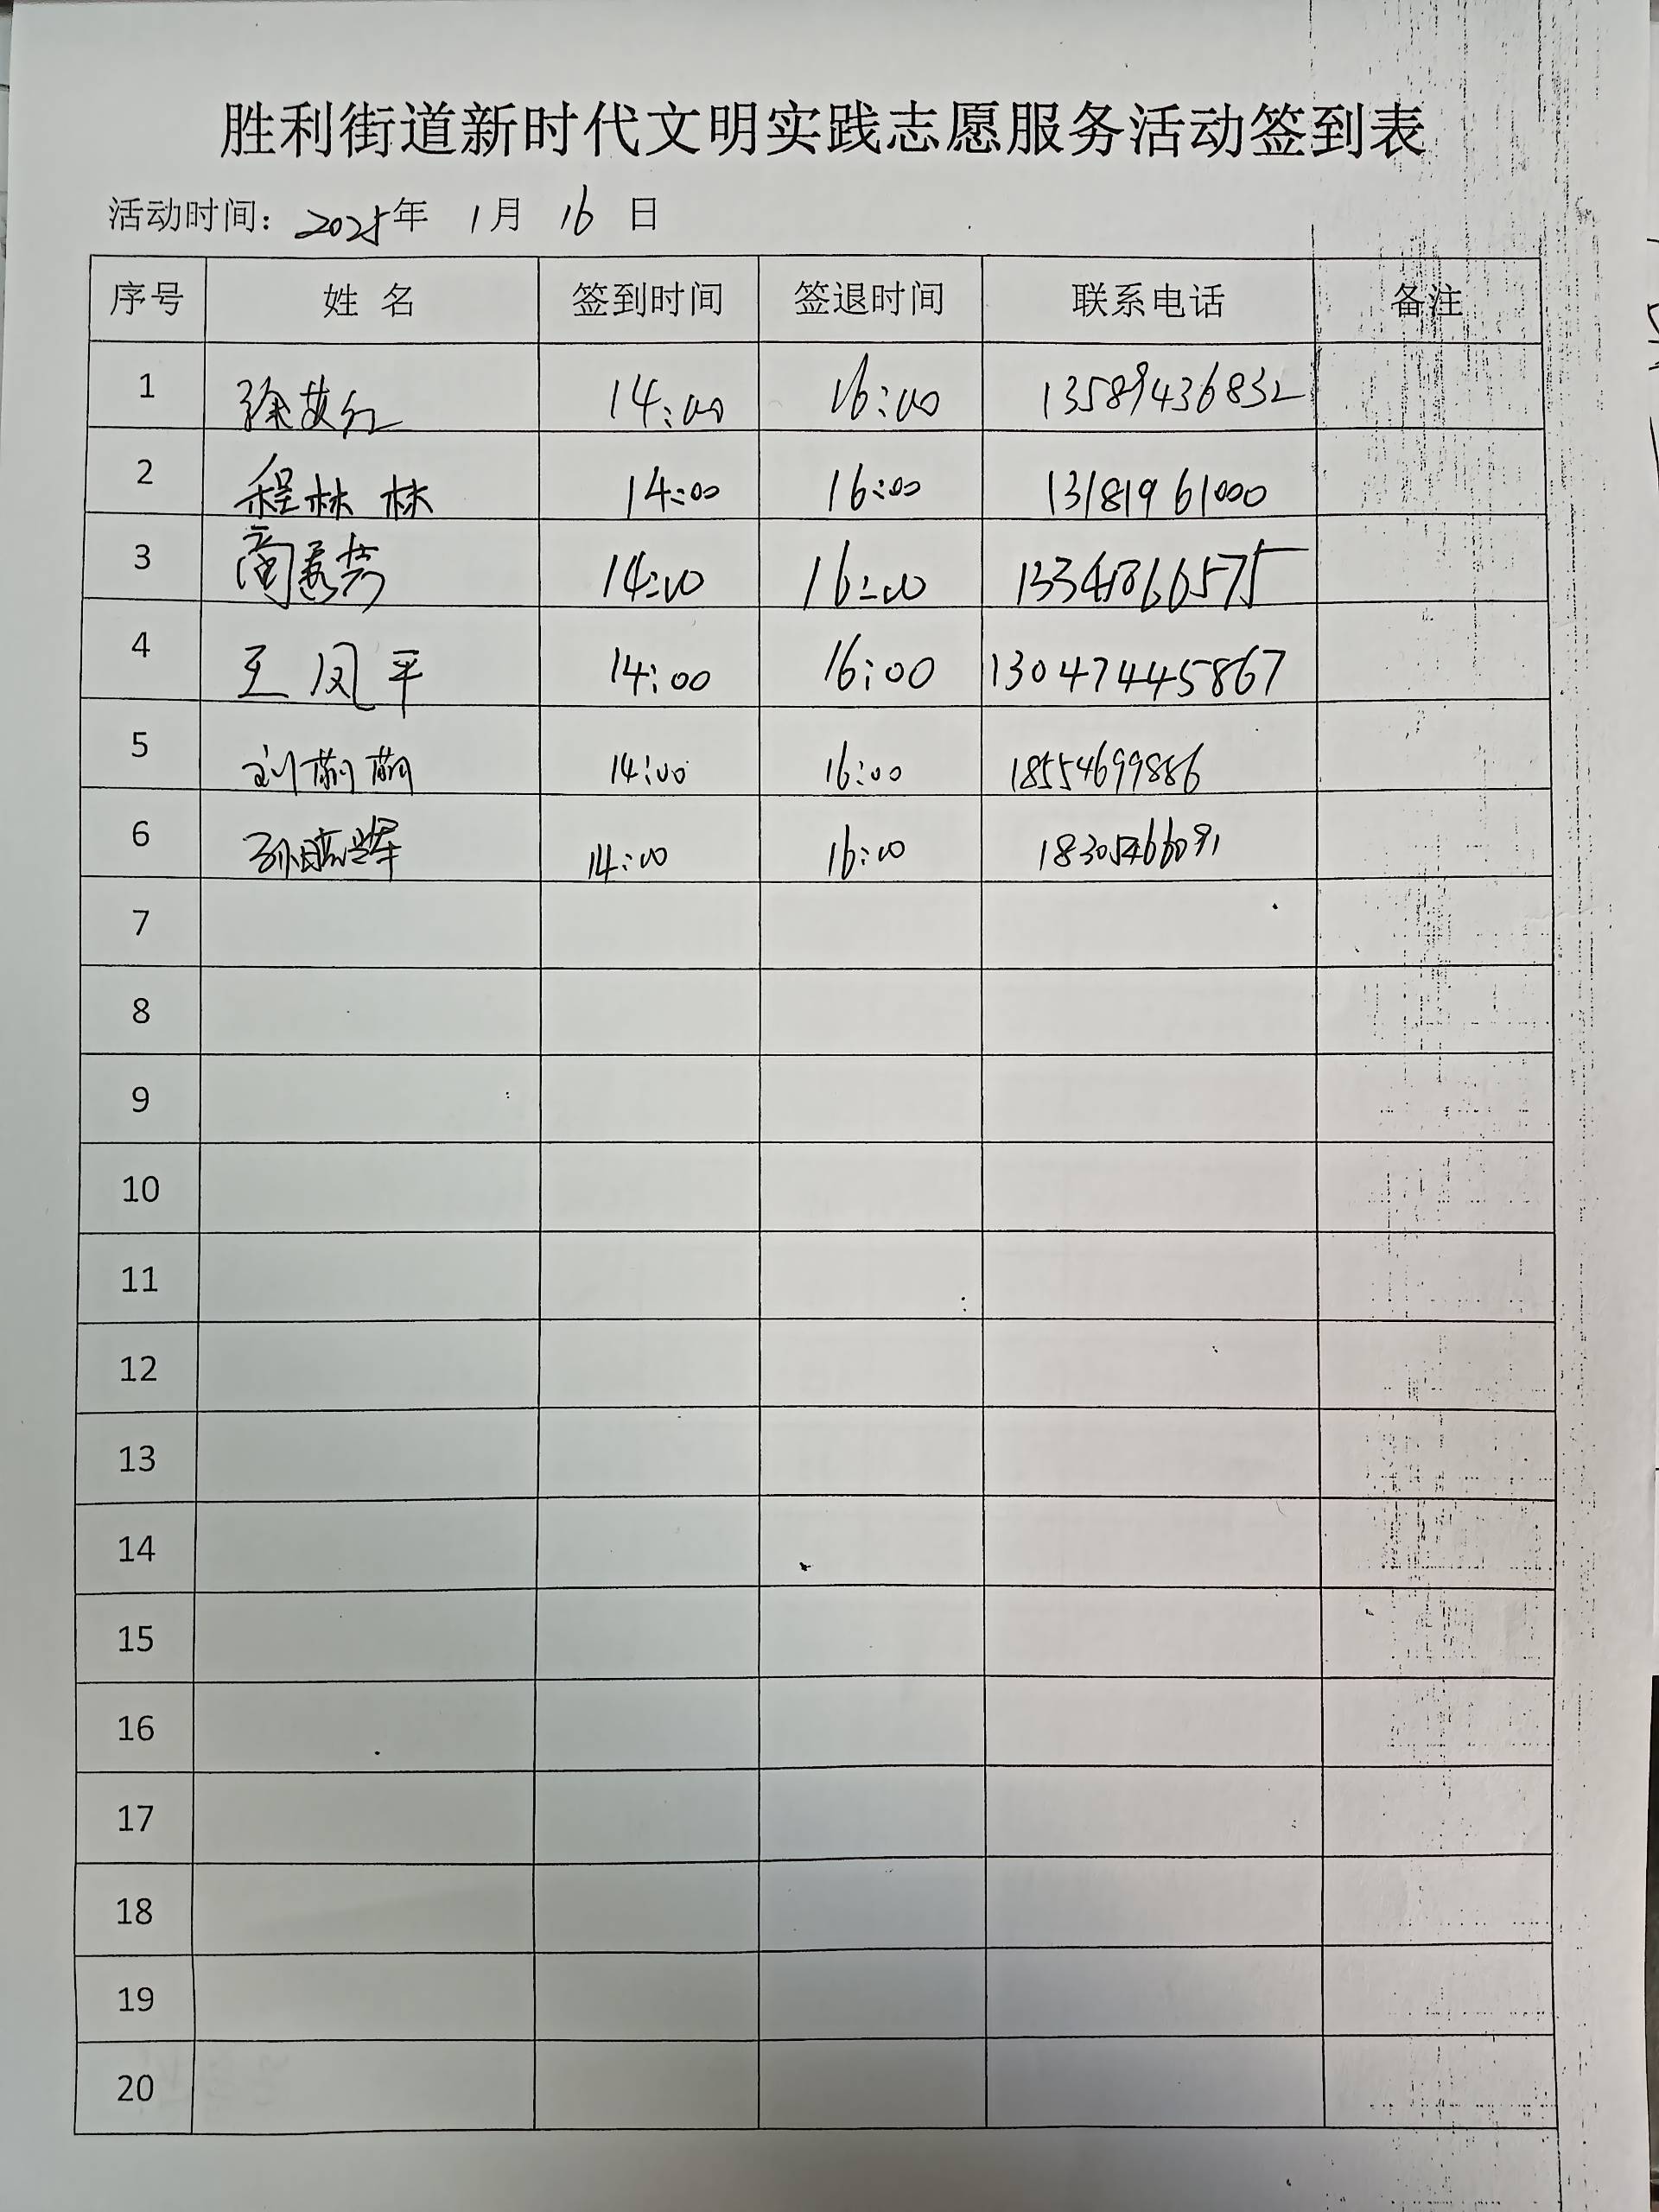 胜利街道新时代文明实践志愿服务活动签到表
活动时间：2025年 1月 16 日
序号 姓名 签到时间 签退时间 联系电话 备注
1 徐 红 14:00 16:00 13589436832
2 程林林 14:00 16:00 13181961000
3 商 芳 14:00 16:00
4 王凤平 14:00 16:00 130474445867
5 刘萌萌 14:00 16:00 18554699886
6 孙 14:00 16:00
7
8
9
10
11
12
13
14
15
16
17
18
19
20